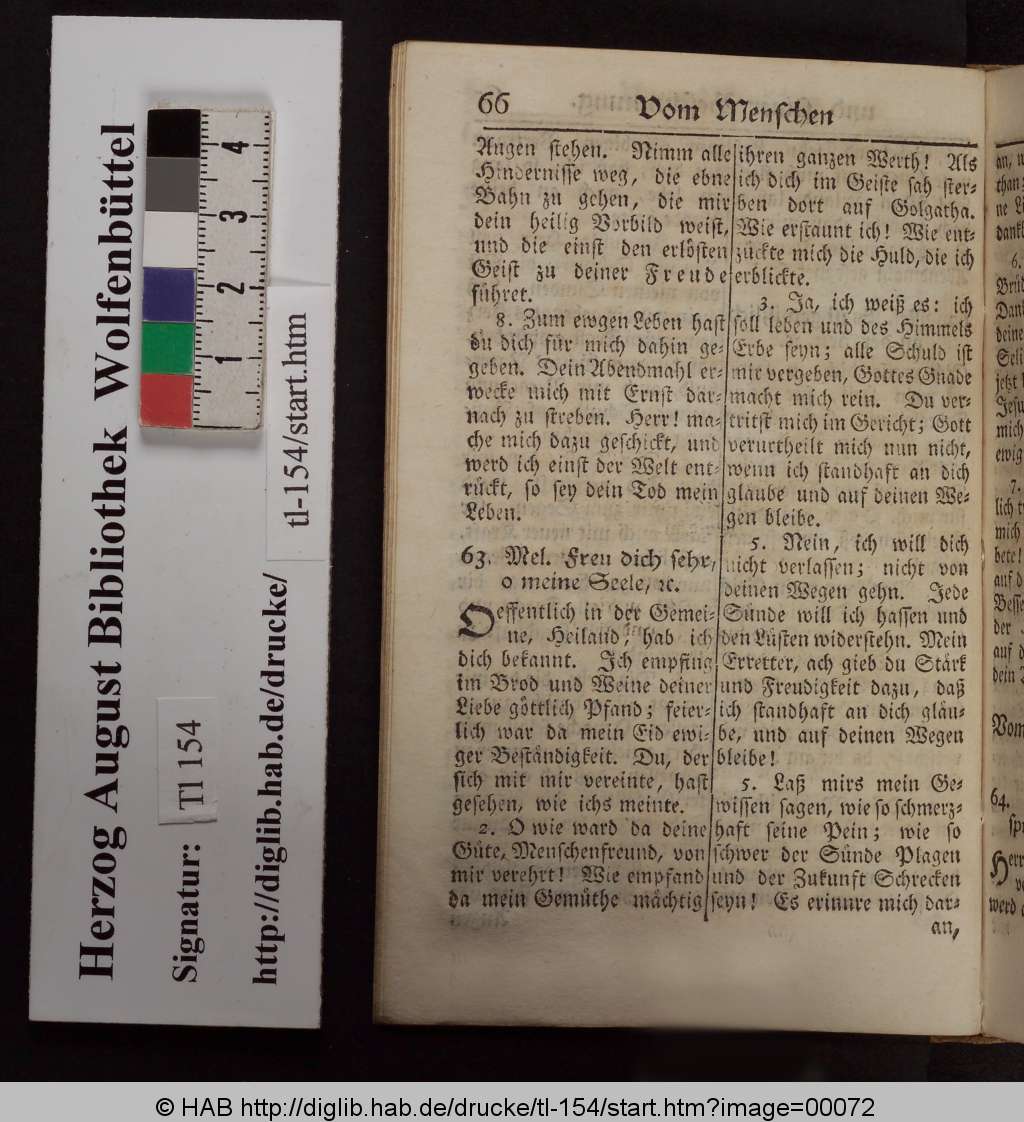 Herzog August Bibliothek Wolfenbüttel
Signatur: Tl 154
http://diglib.hab.de/drucke/
tl-154/start.htm
4
3
2
1
66
Vom Menschen
Augen stehen. Nimm alle
Hindernisse weg, die ebne
Bahn zu gehen, die mir
dein heilig Vorbild weist,
und die einst den erlösten
Geist zu deiner Freude
führet.
8. Zum ewgen Leben hast
du dich für mich dahin ge-
geben. Dein Abendmahl er-
wecke mich mit Ernst dar-
nach zu streben. Herr! ma-
che mich dazu geschickt, und
werd ich einst der Welt ent-
rückt, so sey dein Tod mein
Leben.
63. Mel. Freu dich sehr,
o meine Seele, ꝛc.
Oeffentlich in der Gemei-
ne, Heiland, hab ich
dich bekannt. Ich empfing
im Brod und Weine deiner
Liebe göttlich Pfand; feier-
lich war da mein Eid ewi-
ger Beständigkeit. Du, der
sich mit mir vereinte, hast
gesehen, wie ichs meinte.
2. O wie ward da deine
Güte, Menschenfreund, von
mir verehrt! Wie empfand
da mein Gemüthe mächtig
ihren ganzen Werth! Als
ich dich im Geiste sah ster-
ben dort auf Golgatha.
Wie erstaunt ich! Wie ent-
zückte mich die Huld, die ich
erblickte.
3. Ja, ich weiß es: ich
soll leben und des Himmels
Erbe seyn; alle Schuld ist
mir vergeben, Gottes Gnade
macht mich rein. Du ver-
tritst mich im Gericht; Gott
verurtheilt mich nun nicht,
wenn ich standhaft an dich
glaube und auf deinen We-
gen bleibe.
5. Nein, ich will dich
nicht verlassen; nicht von
deinen Wegen gehn. Jede
Sünde will ich hassen und
den Lüsten widerstehn. Mein
Erretter, ach gieb du Stärk
und Freudigkeit dazu, daß
ich standhaft an dich gläu-
be, und auf deinen Wegen
bleibe!
5. Laß mirs mein Ge-
wissen sagen, wie so schmerz-
haft seine Pein; wie so
schwer der Sünde Plagen
und der Zukunft Schrecken
seyn! Es erinnre mich dar-
an,
6.
7.
64.
© HAB http://diglib.hab.de/drucke/tl-154/start.htm?image=00072